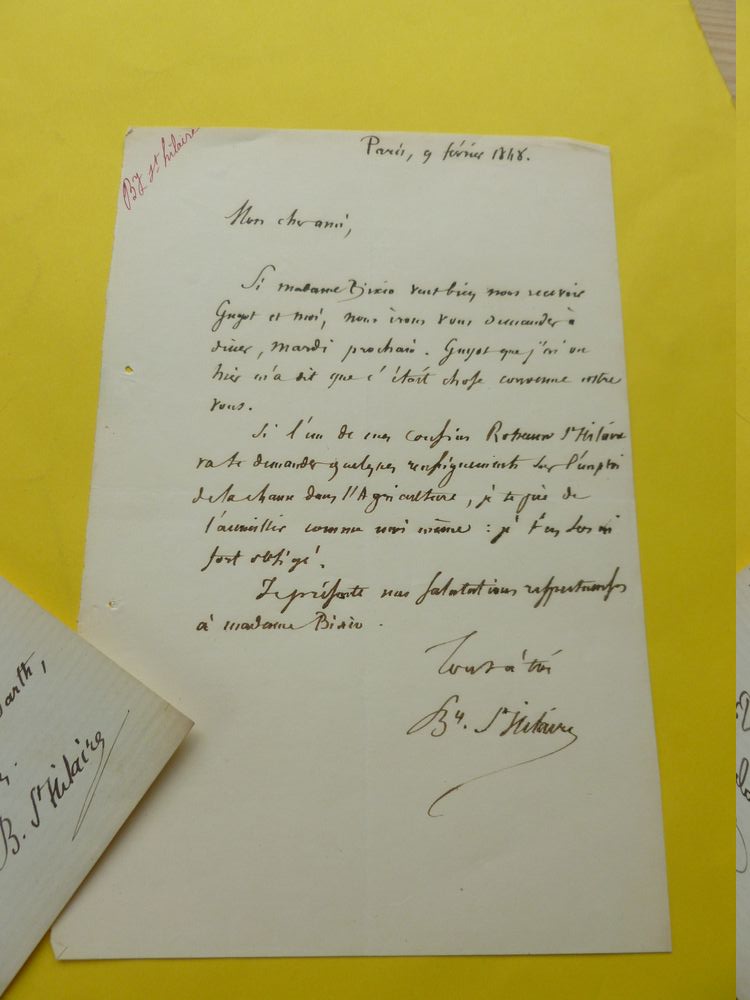 By St hilaire
Paris, 9 février 1848.
Mon cher ami,
Si madame Bixio veut bien nous recevoir
Guyot et moi, nous irons vous demander à
dîner, mardi prochain. Guyot que j'ai vu
hier m'a dit que c'était chose convenue entre
vous.
Si l'un de mes cousins St hilaire
va te demander quelques renseignements sur l'emploi
de la chaux dans l'Agriculture, je te prie de
l'accueillir comme moi même : je t'en serai
fort obligé.
Je présente mes salutations respectueuses
à madame Bixio.
Tout à toi
By. St hilaire
arth,
B. St hilaire